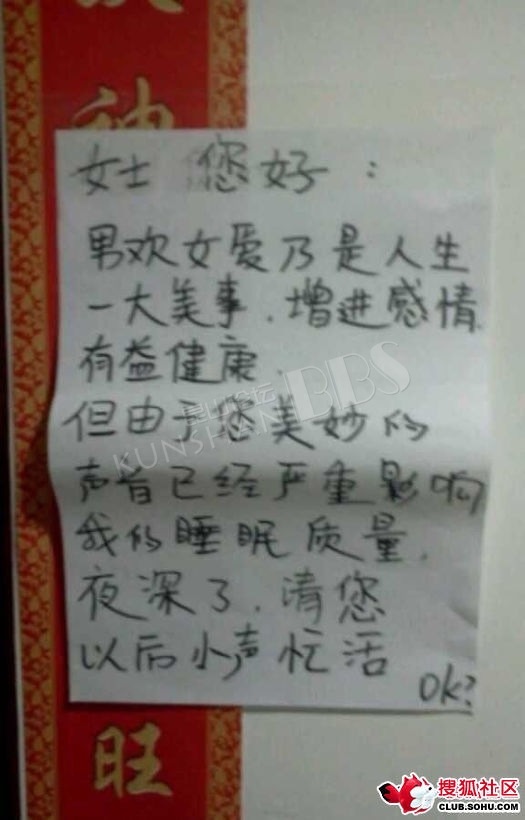 神
旺
女士 您好：
男欢女爱乃是人生
一大美事.增进感情
有益健康.
但由于您美妙的
声音已经严重影响
我的睡眠质量.
夜深了.请您
以后小声忙活
OK?
昆山论坛
KUNSHAN BBS
搜狐社区
CLUB.SOHU.COM